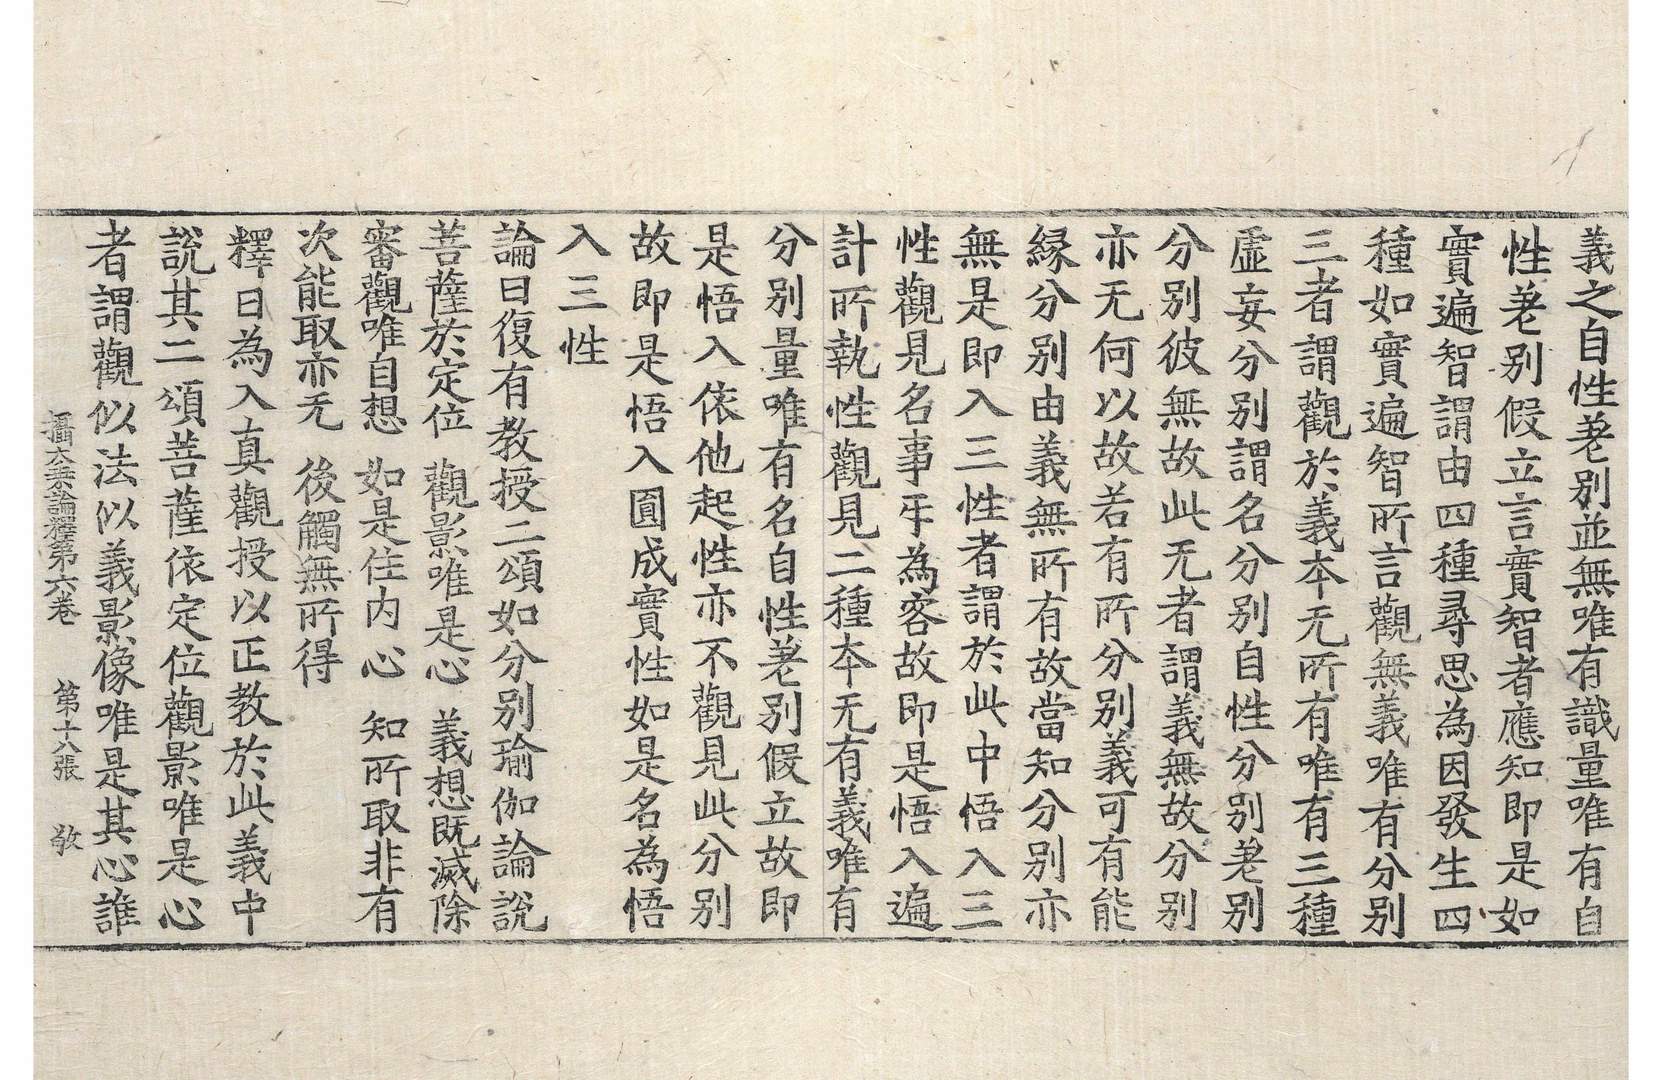 義之自性差別並無唯有識量唯有自
性差別假立言實智者應知即是如
實遍智謂由四種尋思為因發生四
種如實遍智所言觀無義唯有分別
三者謂觀於義本无所有唯有三種
虛妄分別謂名分別自性分別差別
分別彼無故此无者謂義無故分別
亦无何以故若有所分別義可有能
緣分別由義無所有故當知分別亦
無是即入三性者謂於此中悟入三
性觀見名事互為客故即是悟入遍
計所執性觀見二種本无有義唯有
分別量唯有名自性差別假立故即
是悟入依他起性亦不觀見此分別
故即是悟入圓成實性如是名為悟
入三性
論曰復有教授二頌如分別瑜伽論說
菩薩於定位 觀影唯是心 義想既滅除
審觀唯自想 如是住內心 知所取非有
次能取亦无 後觸無所得
釋曰為入真觀授以正教於此義中
說其二頌菩薩依定位觀影唯是心
者謂觀似法似義影像唯是其心誰
攝大乘論釋第六卷 第十八張 效